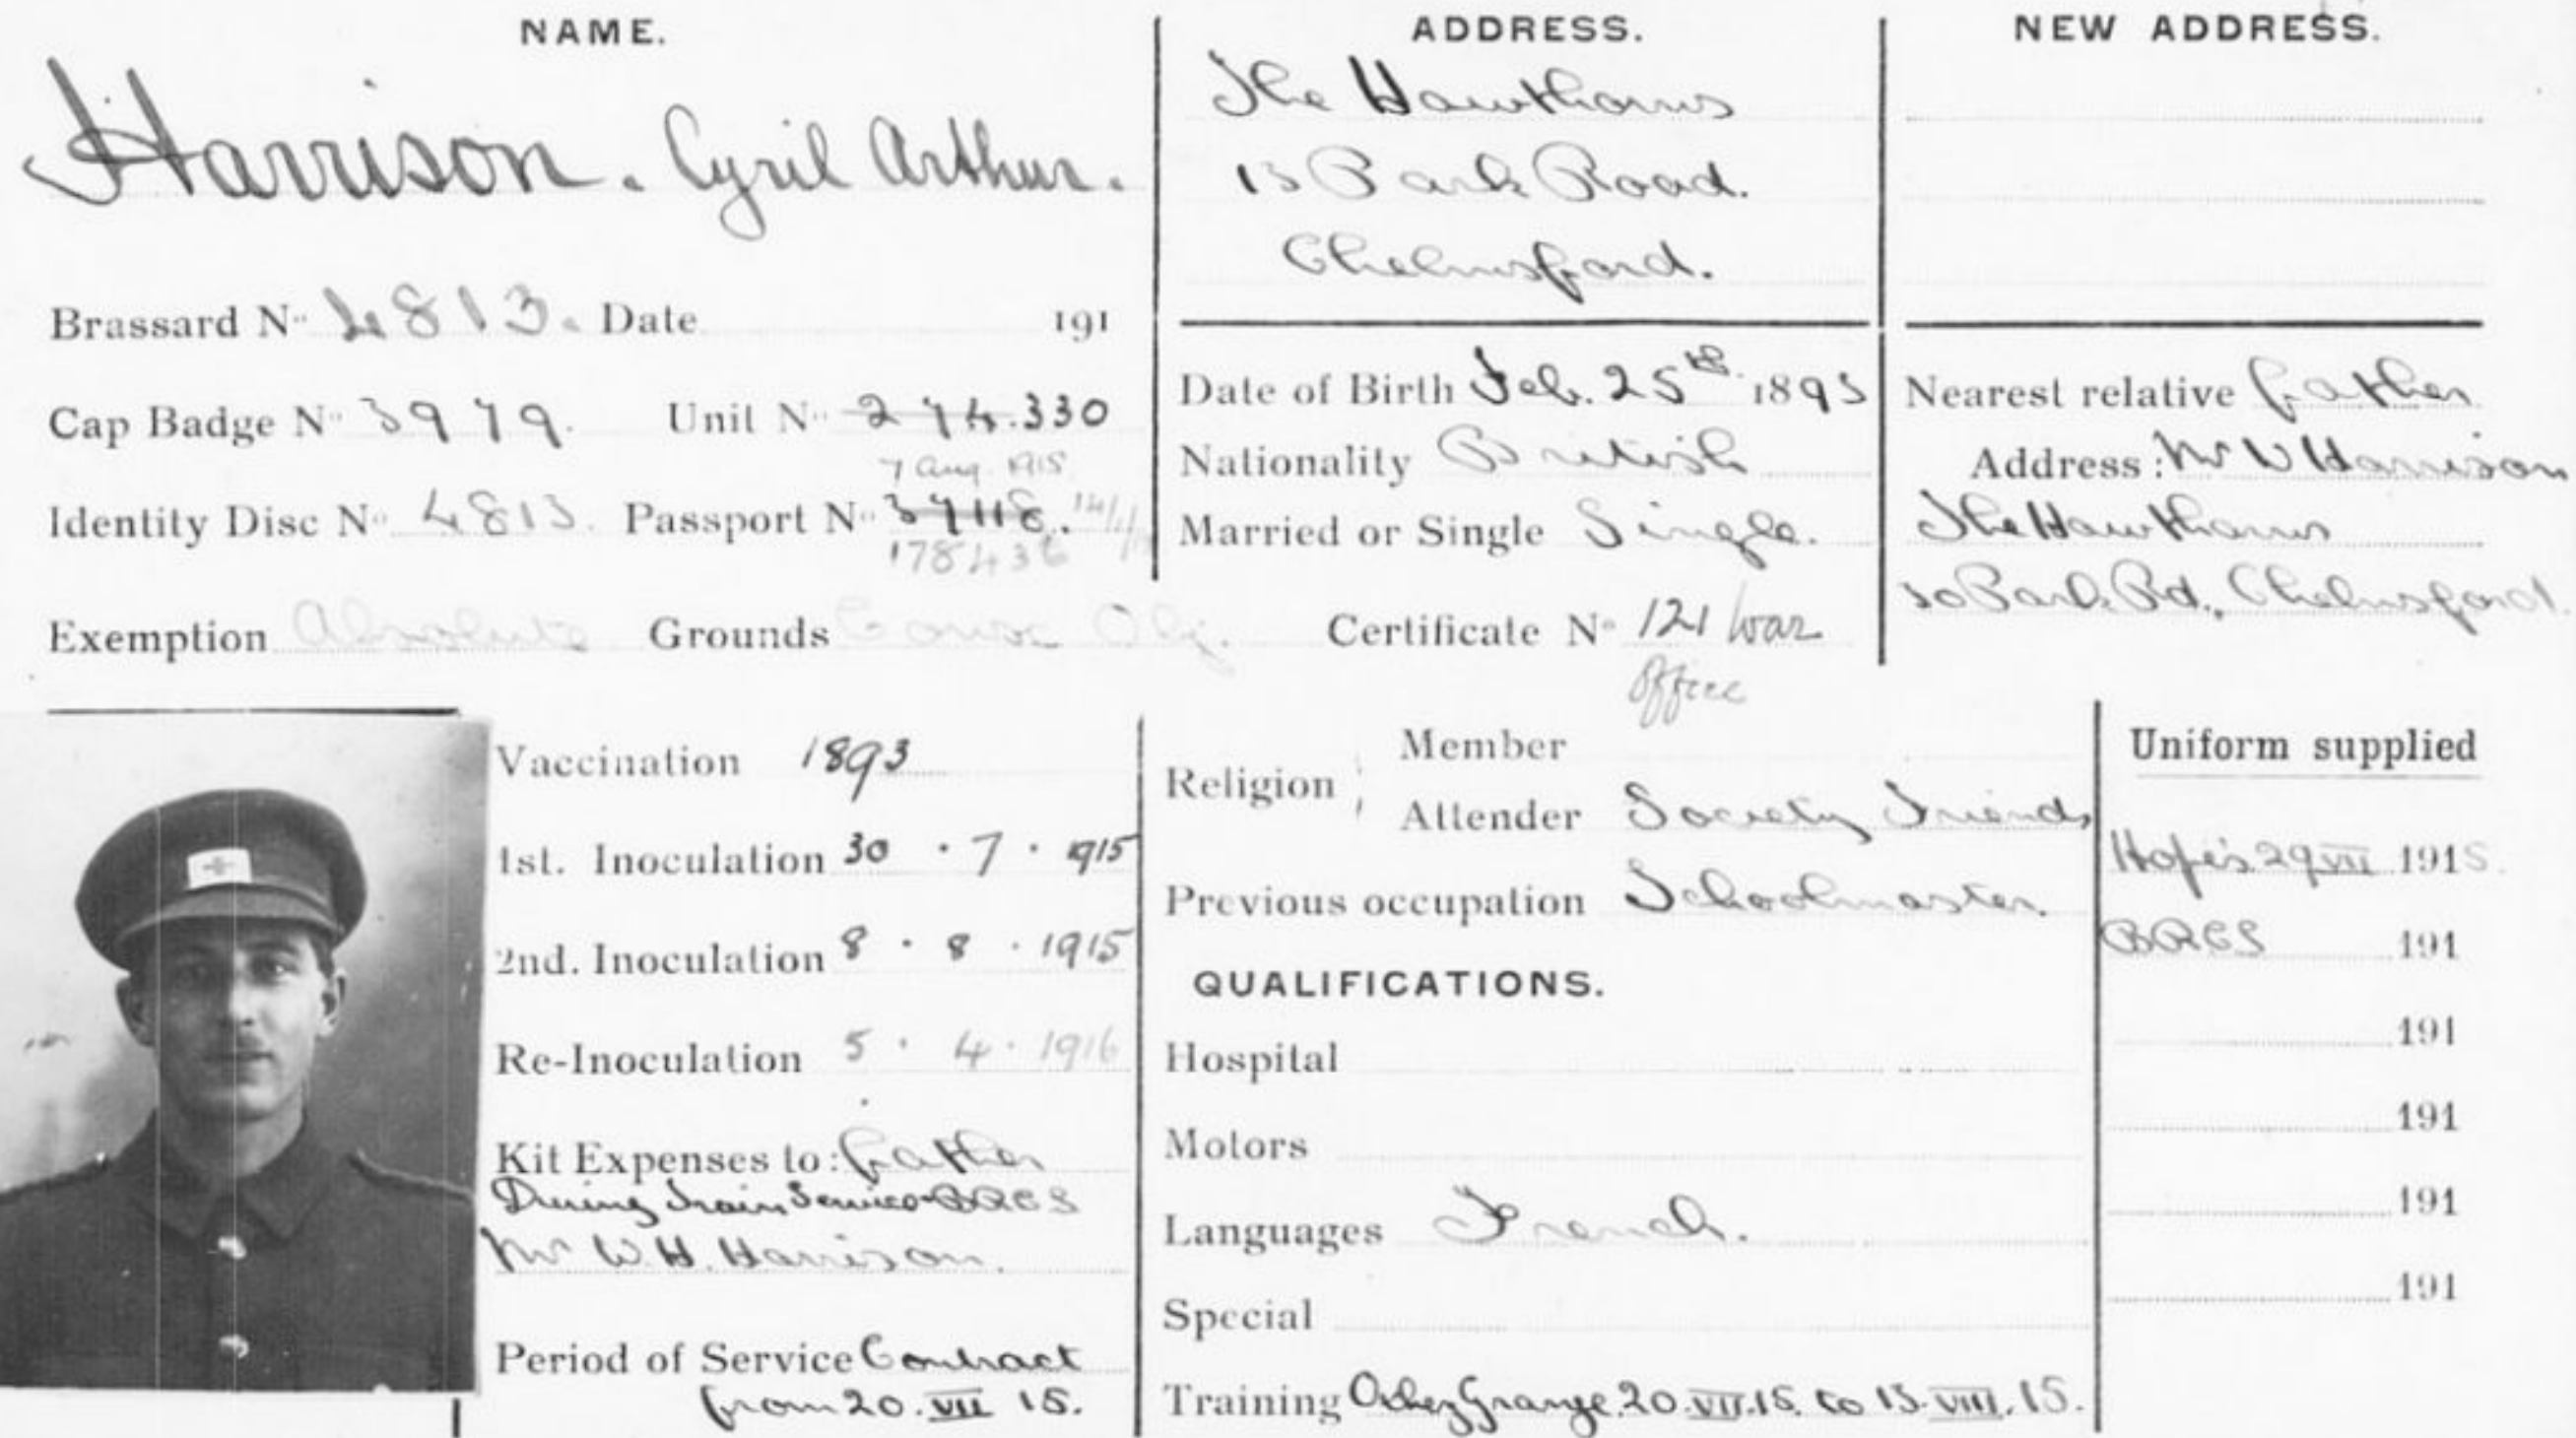 NAME.
Harrison. Cyril Arthur.
Brassard No 4813. Date 191
Cap Badge No 3979. Unit No 274.330
7 Aug. 1915
Identity Disc No 4813. Passport No 37118.
178436
Exemption Absolute Grounds Consc Obj. Certificate No 121 War
Office
ADDRESS.
The Hawthorns
Park Road.
Chelmsford.
Date of Birth Feb. 25th. 1893
Nationality British
Married or Single Single.
NEW ADDRESS.
Nearest relative father
Address: Mr W Harrison
The Hawthorns
Park Rd., Chelmsford.
Vaccination 1893
1st. Inoculation 30 . 7 . 1915
2nd. Inoculation 8 . 8 . 1915
Re-Inoculation 5 . 4 . 1916
Kit Expenses to: father
During Train Service BRCS
Mr W. H. Harrison.
Period of Service Contract
from 20. VII 15.
Religion
Member
Attender Society Friends
Previous occupation Schoolmaster.
QUALIFICATIONS.
Hospital
Motors
Languages French.
Special
Training Grange. 20. VII. 15. to 13. VIII. 15.
Uniform supplied
Hope's 29 VII 1915.
BRCS 191
191
191
191
191